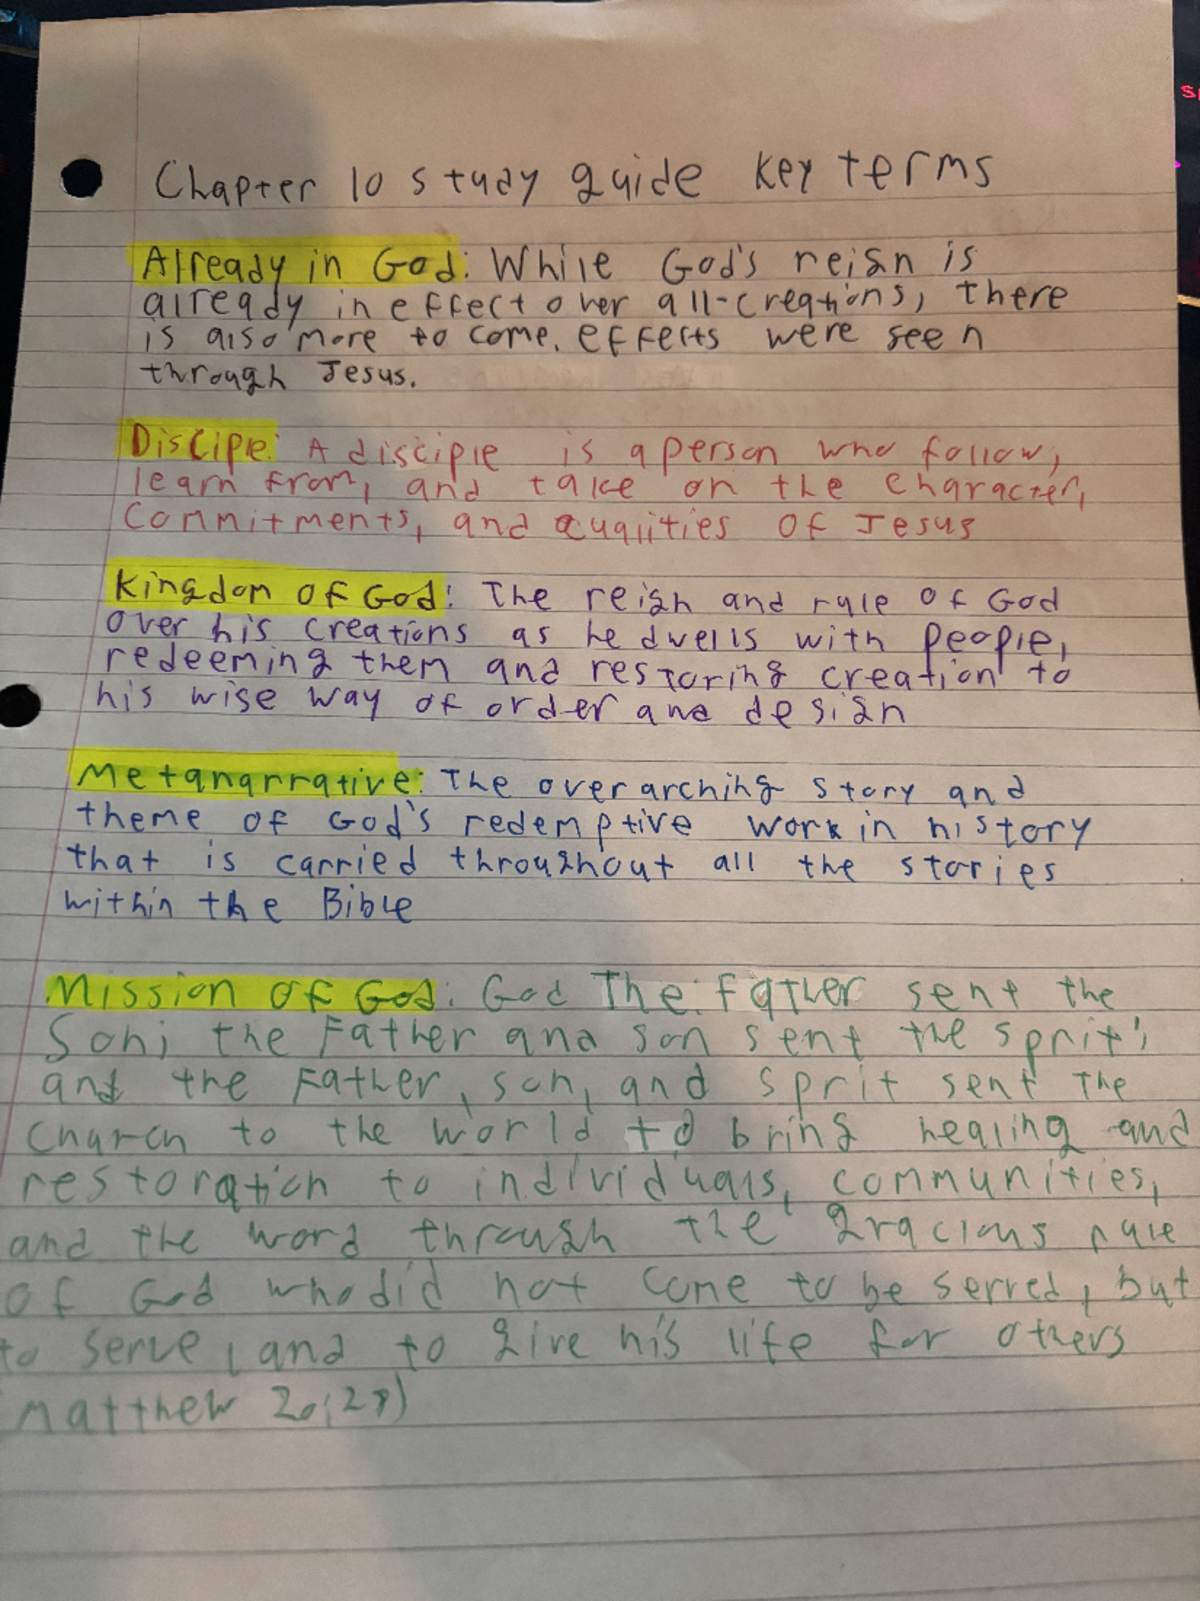 Chapter 10 study guide key terms
Already in God: While God's reign is
already in effect over all-creations, there
is also more to come. effects were seen
through Jesus.
Discipe: A disciple is a person who follow,
learn from, and take on the character,
commitments, and quqlities of Jesus
Kingdom of God: The reign and rule of God
over his creations as he dwells with people,
redeeming them and restoring creation to
his wise way of order and design
Metanarrative: The overarching story and
theme of God's redemptive work in history
that is carried throughout all the stories
within the Bible
Mission of God: God The Father sent the
Son; the Father and son sent the sprit;
and the Father, son, and sprit sent The
church to the world to bring healing and
restoration to individuals, communities,
and the word through the gracious rule
of God who did not come to be served, but
to serve, and to give his life for others
Matthew 20:28)